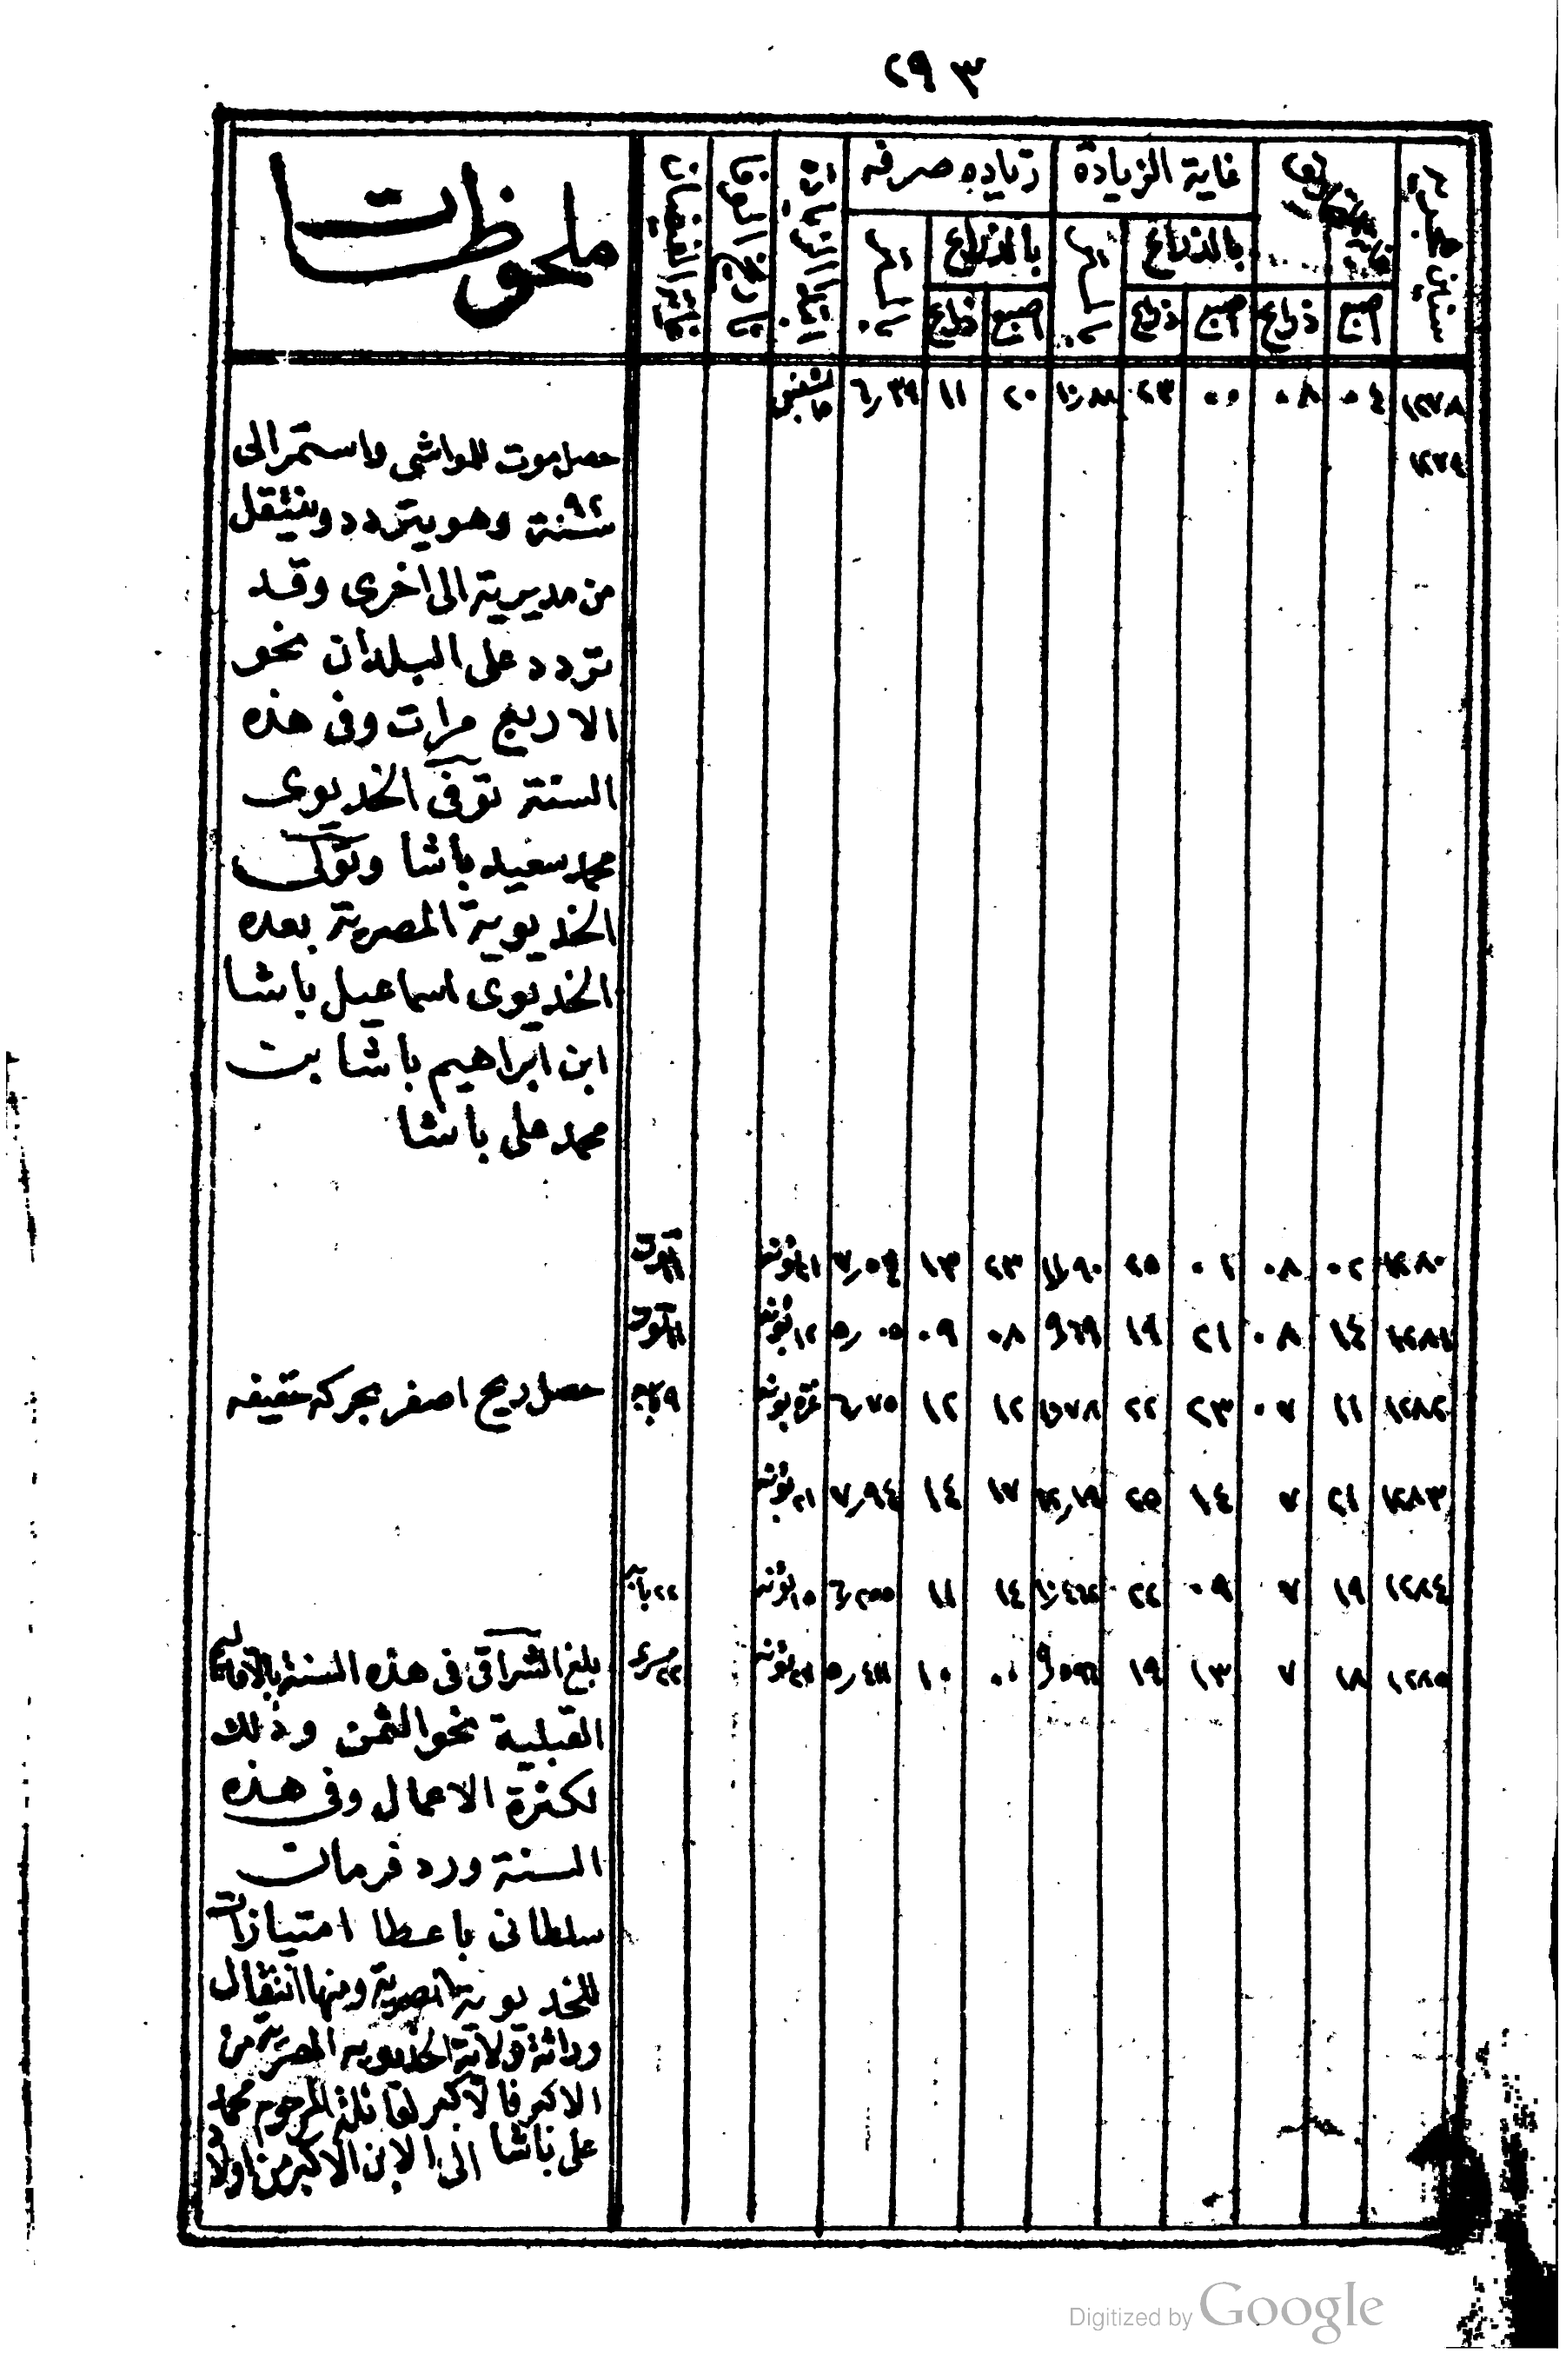 ٢٩٣
سنين هجرية
غاية الزيادة
زياده صرفه
ابتداء الزيادة
تاريخ الوفا
غاية الفيضان
ملحوظات
بالذراع
بالذراع
اصبع ذراع اصبع ذراع اصبع ذراع
١٢٧٨ ٠٤ ٠٨ ٠٠ ٢٣ ١٠٫٨٨ ٢٠ ١١ ٦٫٣٩ بشنس
١٢٧٩
حصل موت للمواشى واستمر الى
سنة ٩٢ وهو يتردد وينتقل
من مديرية الى اخرى وقد
تردد على البلدان نحو
الاربع مرات وفى هذه
السنة توفى الخديوى
محمد سعيد باشا وتولى
الخديوية المصرية بعده
الخديوى اسماعيل باشا
ابن ابراهيم باشا بن
محمد على باشا
١٢٨٠ ٠٢ ٠٨ ٠٢ ٢٥ ١١٫٩٠ ٢٣ ١٣ ٧٫٥٤ ٢١ بؤنه
١٢٨١ ١٤ ٠٨ ٢١ ١٩ ٩٫٦٩ ٠٨ ٠٩ ٥٫٠٥ ١٢ بؤنه
١٢٨٢ ١١ ٠٧ ٢٣ ٢٢ ١٠٫٧٨ ١٢ ١٢ ٦٫٧٥ غرة بؤنه ٩ بابه حصل ريح اصفر بحركه خفيفه
١٢٨٣ ٢١ ٧ ١٤ ٢٥ ١٢٫١٩ ١٧ ١٤ ٧٫٩٤ ٢١ بؤنه
١٢٨٤ ١٩ ٧ ٠٩ ٢٢ ١٤ ١١ ٦٫٢٥٥ ١٥ بؤنه ٢٢ بابه
١٢٨٥ ١٨ ٧ ١٣ ١٩ ٠٠ ١٠ بؤنه ٢٢ مسرى بلغ الشراقى فى هذه السنة بالاقاليم
القبلية نحو الثمن وذلك
لكثرة الاعمال وفى هذه
السنة ورد فرمان
سلطانى باعطا امتيازات
للخديوية المصرية ومنها انتقال
وراثة ولاية الخديويه المصرية من
الاكبر فالاكبر لعائلة المرحوم محمد
على باشا الى الابن الاكبر من اولاد
Digitized by Google